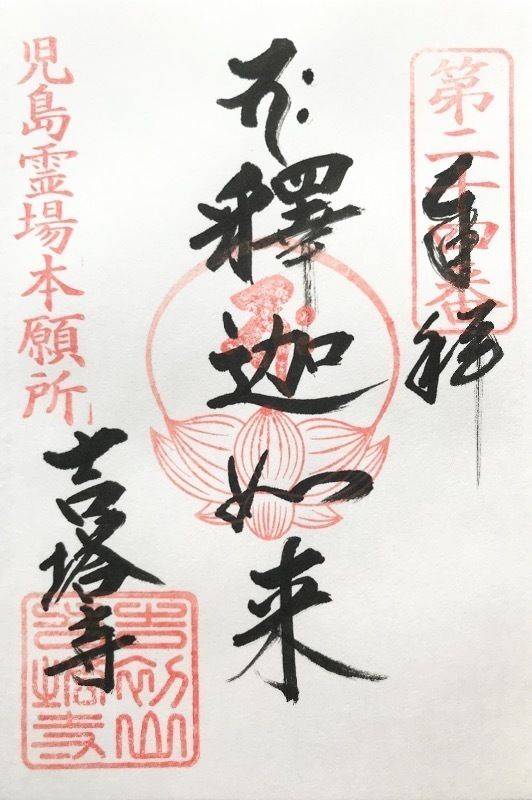 第二十四番
奉拝
釋迦如来
児島霊場本願所
吉塔寺
吉塔寺